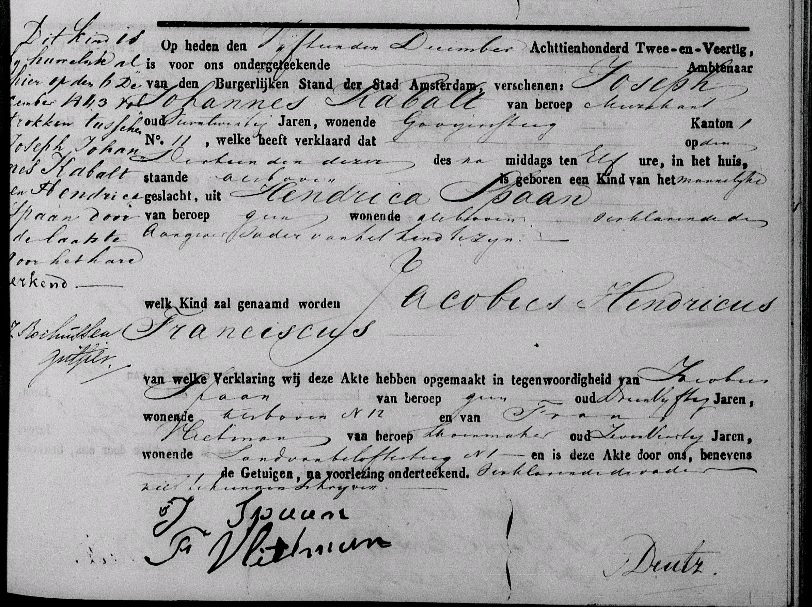 Dit kind is
by huwelijk al
hier op den 6 De
cember 1843 vol
trokken tusschen
Joseph Johan
nes Kabalt
en Hendrica
Spaan door
de laatste
voor het hare
erkend
Op heden den Vyftienden December Achttienhonderd Twee-en-Veertig,
is voor ons ondergeteekende Ambtenaar
van den Burgerlijken Stand der Stad Amsterdam, verschenen: Joseph
Johannes Kabalt van beroep
oud Jaren, wonende Kanton 1
N°. 11, welke heeft verklaard dat op den
Dertienden dezer des na middags ten Elf ure, in het huis,
staande als boven is geboren een Kind van het mannelyke
geslacht, uit Hendrica Spaan
van beroep geen wonende als boven verklarende de
Aangever Vader van het kind te zyn.
welk Kind zal genaamd worden Jacobus Hendricus
Franciscus
van welke Verklaring wij deze Akte hebben opgemaakt in tegenwoordigheid van Jacobus
Spaan van beroep geen oud Drieenvyftig Jaren,
wonende als boven N 12 en van Frans
van beroep Schoenmaker oud Jaren,
wonende N 1 en is deze Akte door ons, benevens
de Getuigen, na voorlezing onderteekend. Verklarende de vader
niet te kunnen schryven.
J Spaan
Deutz.